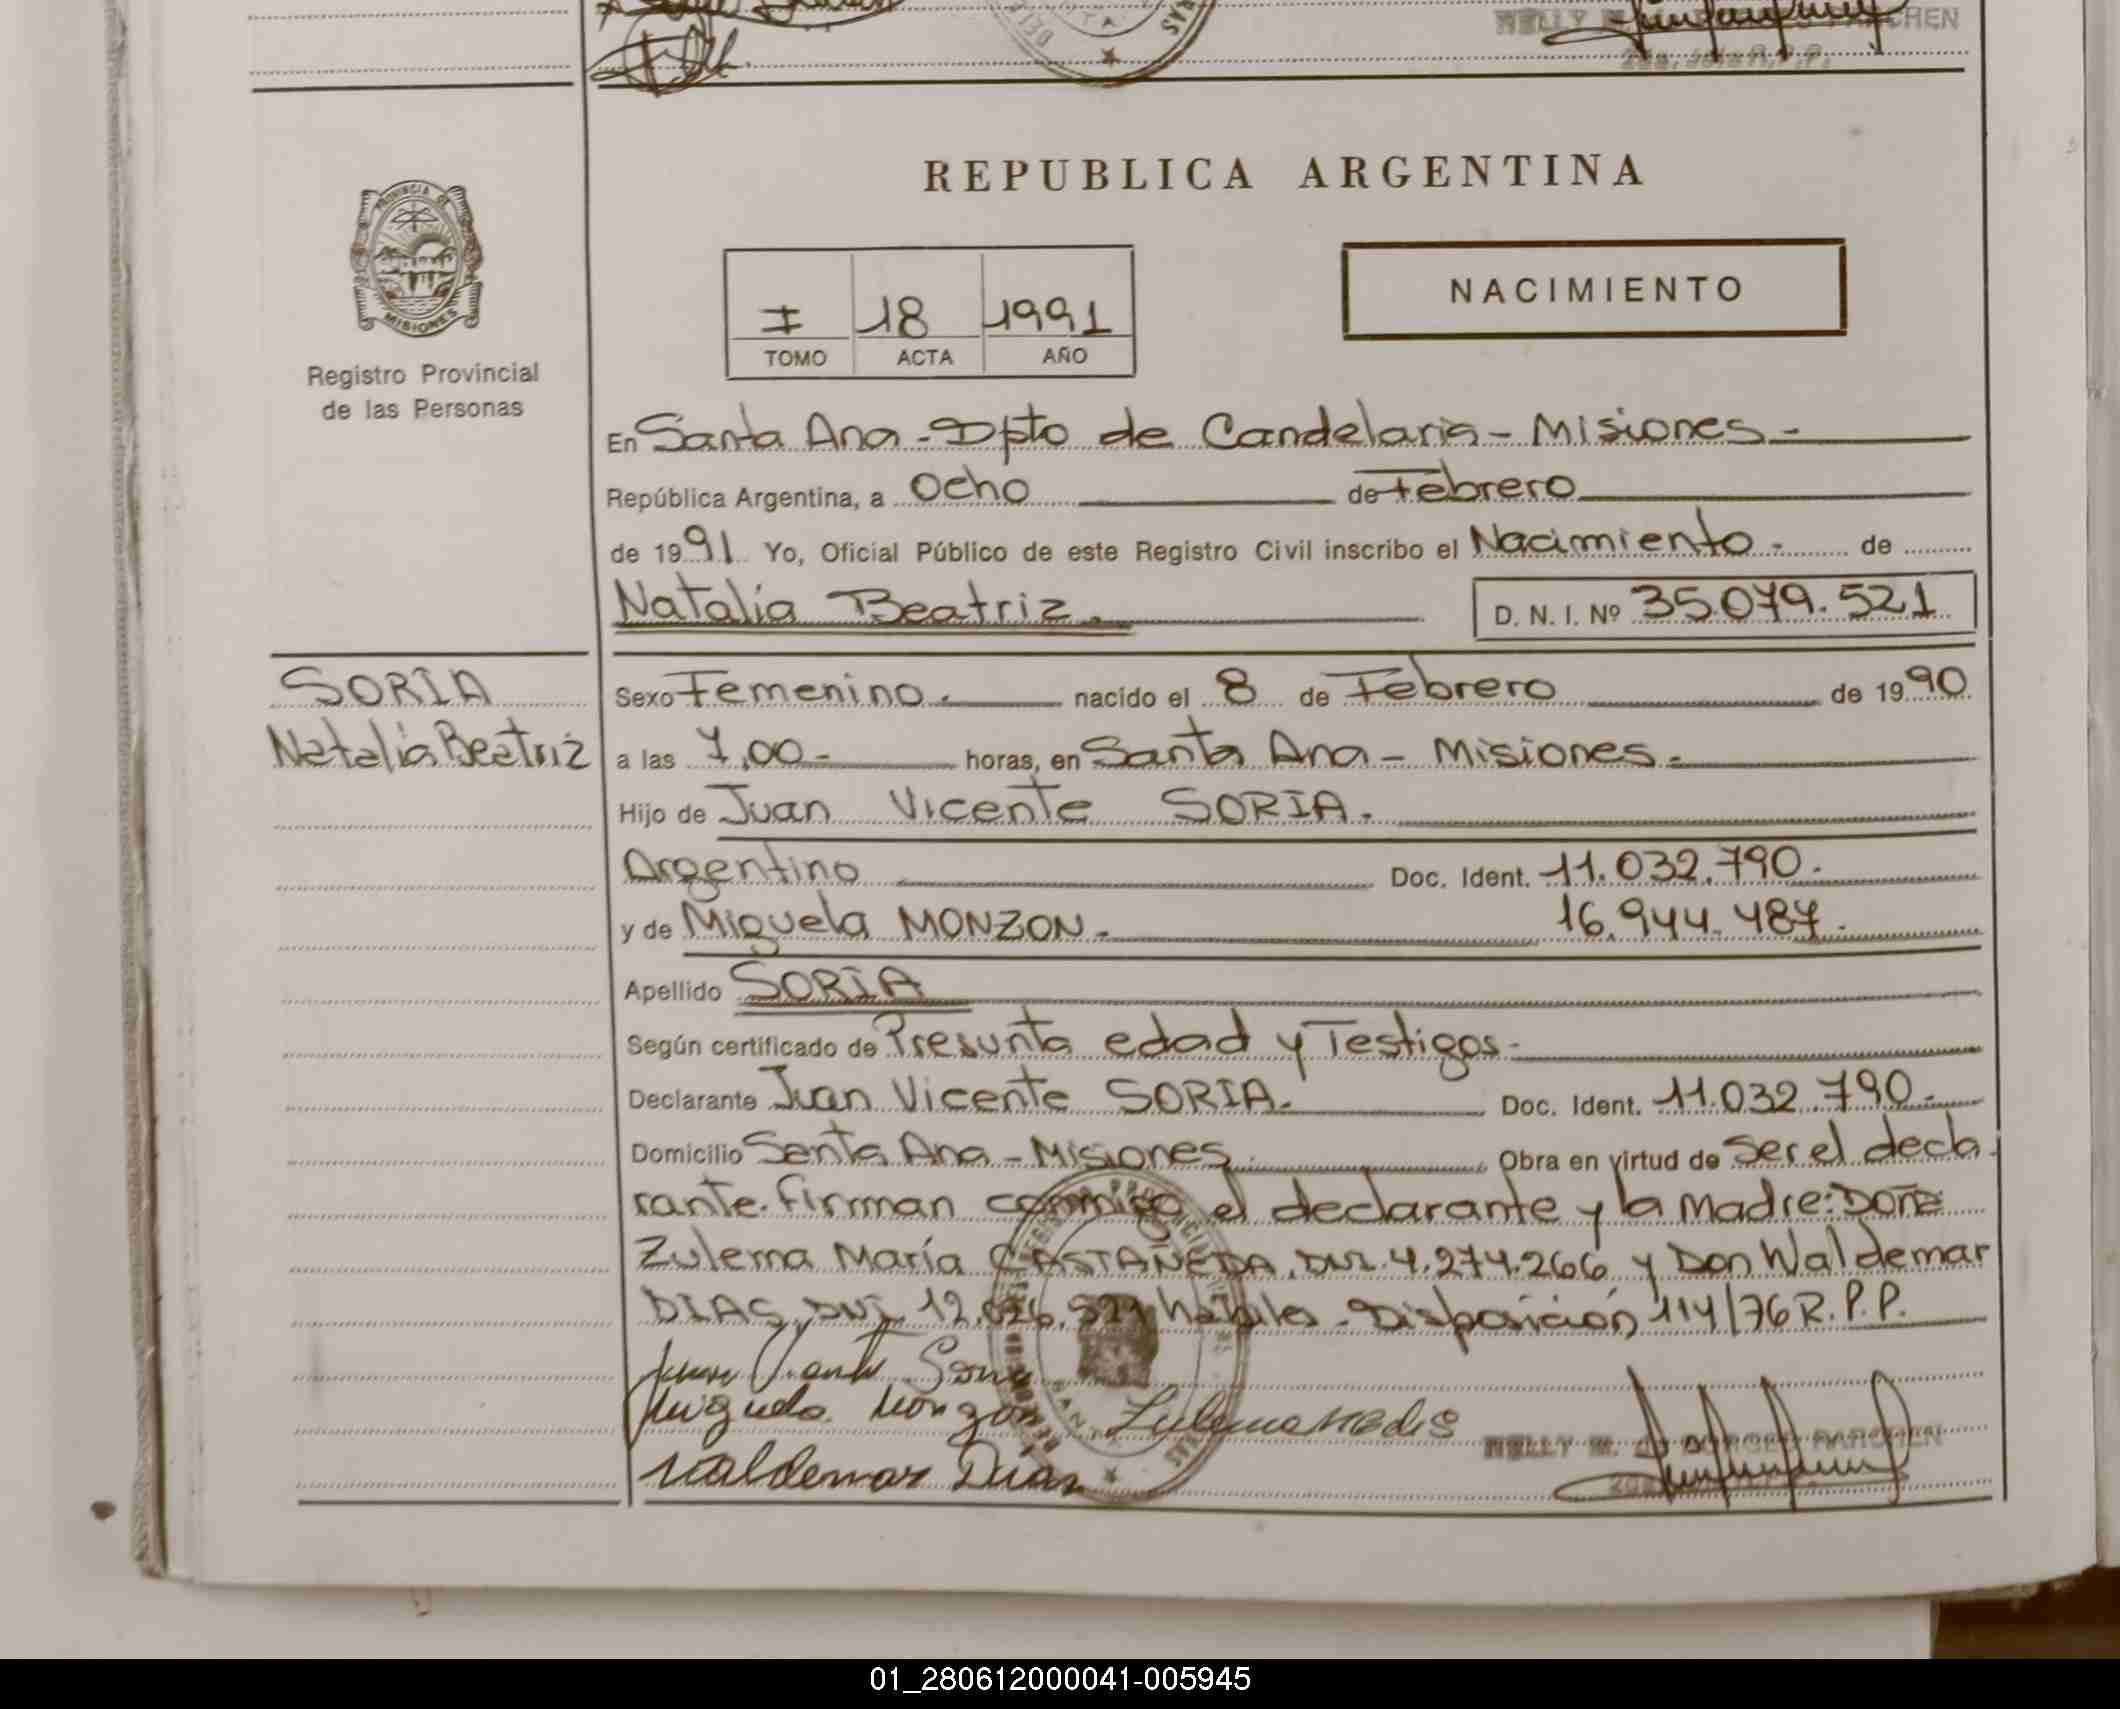 REPUBLICA ARGENTINA
PROVINCIA DE MISIONES
Registro Provincial
de las Personas
I 18 1991
TOMO ACTA AÑO
NACIMIENTO
En Santa Ana - Dpto de Candelaria - Misiones -
República Argentina, a Ocho de Febrero
de 1991 Yo, Oficial Público de este Registro Civil inscribo el Nacimiento - de
Natalia Beatriz. D. N. I. Nº 35.079.521
SORIA
Natalia Beatriz
Sexo Femenino. nacido el 8 de Febrero de 1990
a las 7,00 - horas, en Santa Ana - Misiones -
Hijo de Juan Vicente SORIA.
Argentino Doc. Ident. 11.032.790.
y de Miguela MONZON. 16.944.487.
Apellido SORIA
Según certificado de Presunta edad y Testigos -
Declarante Juan Vicente SORIA. Doc. Ident. 11.032.790 -
Domicilio Santa Ana - Misiones Obra en virtud de Ser el decla
rante. Firman conmigo el declarante y la Madre: Doña
Zulema María CASTAÑEDA, DNI. 4.274.266 y Don Waldemar
DIAS, DNI. 12. hábiles - Disposición 114/76 R.P.P.
Miguela Monzon
Waldemar Dias
NELLY M. DE BORGES PARCHEN
01_280612000041-005945